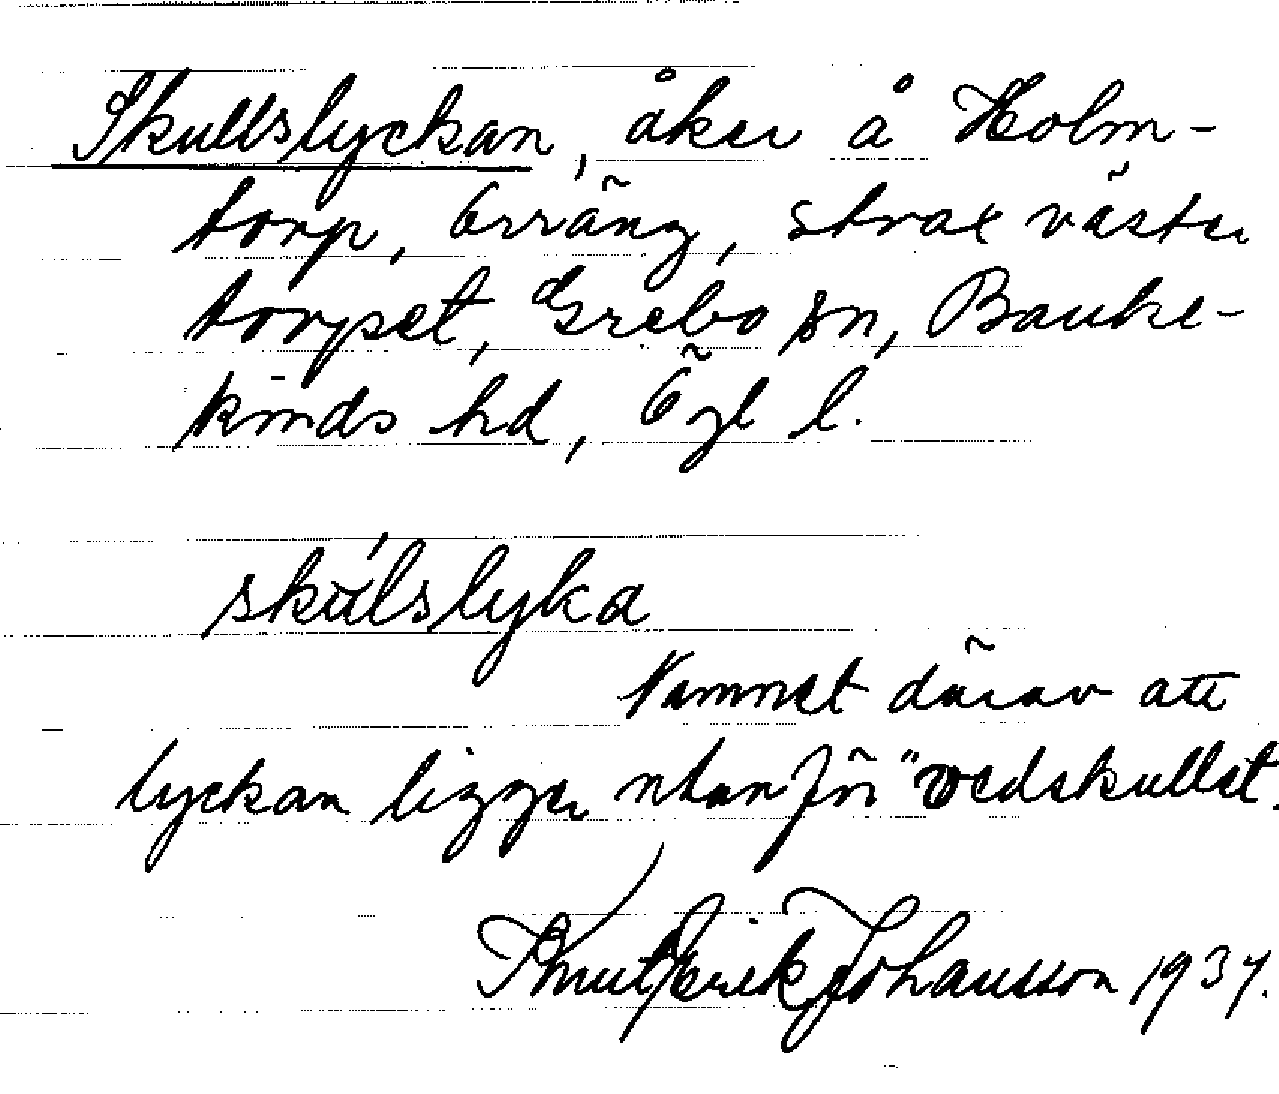 Skullslyckan, åker å Holm-
torp, Örräng, strax väster
torpet, Grebo sn, Banke-
kinds hd, Ögl l.
skúlslyka
Namnet därav att
lyckan ligger utanför "vedskullet.
Knut Erik Johansson 1937.